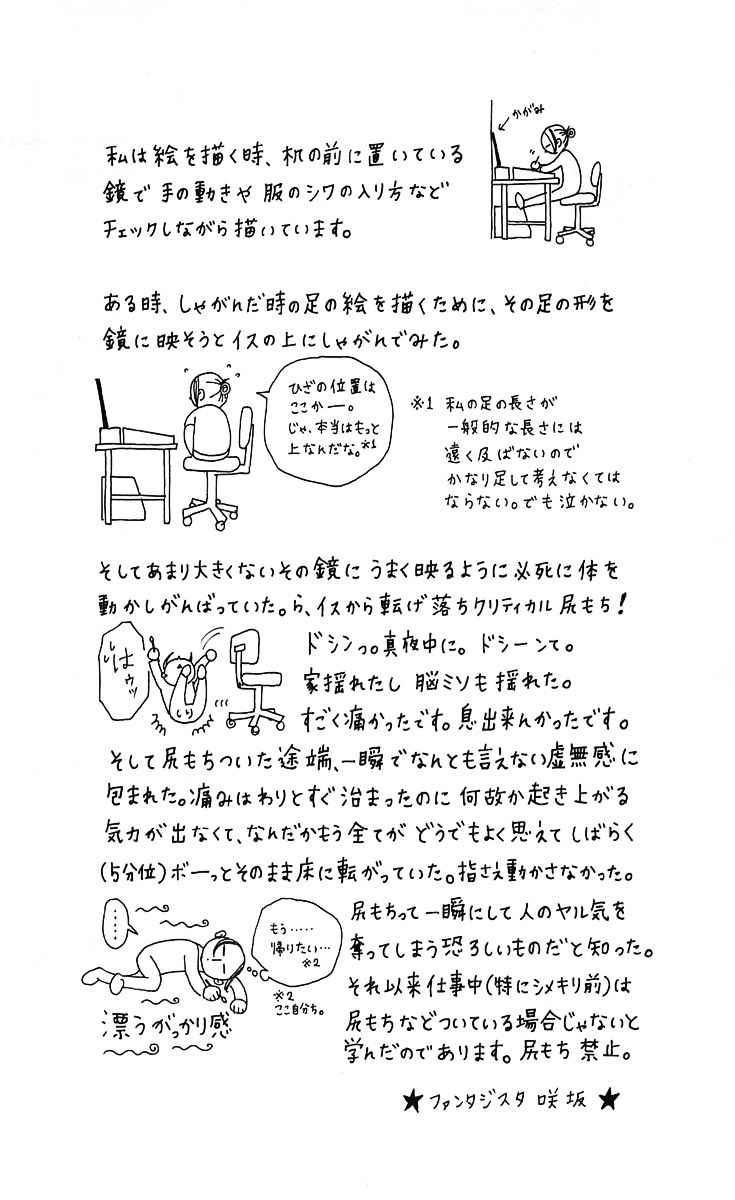 私は絵を描く時、机の前に置いている
鏡で手の動きや服のシワの入り方など
チェックしながら描いています。
かがみ
ある時、しゃがんだ時の足の絵を描くために、その足の形を
鏡に映そうとイスの上にしゃがんでみた。
ひざの位置は
ここかー。
じゃ、本当はもっと
上なんだな。※1
※1 私の足の長さが
一般的な長さには
遠く及ばないので
かなり足して考えなくては
ならない。でも泣かない。
そしてあまり大きくないその鏡にうまく映るように必死に体を
動かしがんばっていた。ら、イスから転げ落ちクリティカル尻もち!
はウッ
しり
ドシンっ。真夜中に。ドシーンて。
家揺れたし脳ミソも揺れた。
すごく痛かったです。息出来んかったです。
そして尻もちついた途端、一瞬でなんとも言えない虚無感に
包まれた。痛みはわりとすぐ治まったのに何故か起き上がる
気力が出なくて、なんだかもう全てがどうでもよく思えてしばらく
(5分位)ボーっとそのまま床に転がっていた。指さえ動かさなかった。
‥‥‥
もう‥‥‥
帰りたい…
※2
※2
ここ自分ち。
漂うがっかり感
尻もちって一瞬にして人のヤル気を
奪ってしまう恐ろしいものだと知った。
それ以来仕事中(特にシメキリ前)は
尻もちなどついている場合じゃないと
学んだのであります。尻もち禁止。
★ファンタジスタ咲坂★